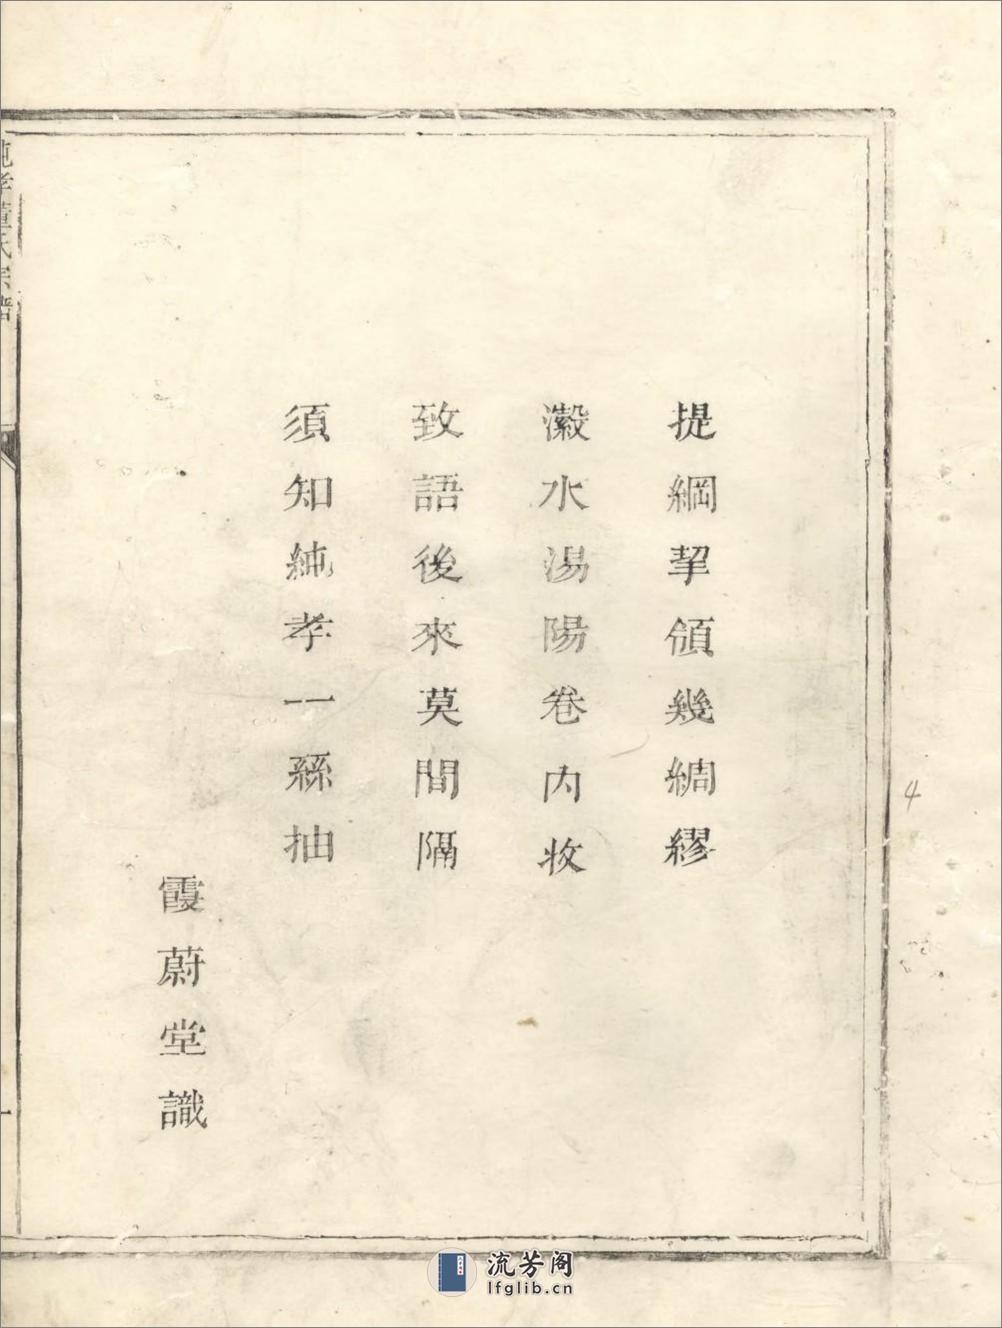 提綱挈頒幾綢繆
瀫水湯陽卷內收
致語後來莫間隔
須知純孝一絲抽
霞蔚堂識
純孝董氏宗譜
一
4
流芳阁
lfglib.cn